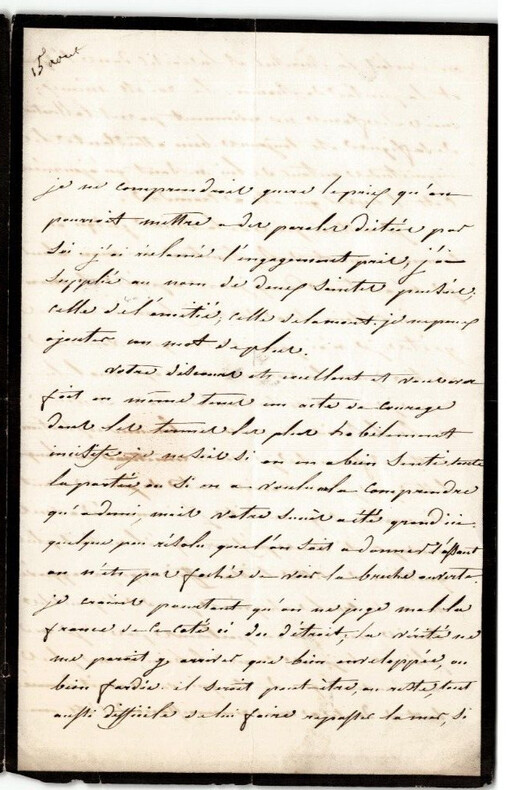 15 aout
je ne comprendrois guere le prix qu'on
pourroit mettre a des paroles dictées par
soi. j'ai réclamé l'engagement pris, j'ai
supplié au nom de deux saintes pensées,
celle de l'amitié, celle de la mort. je ne puis
ajouter un mot de plus.
votre discours est excellent et vous avez
fait en même tems un acte de courage
dans les termes les plus habilement
je ne sais si on en a bien senti toute
la portée ou si on a voulu la comprendre
qu'a demi, mais votre succès a été grand ici.
quelque peu résolu que l'on soit a donner l'assaut
on n'est pas faché de voir la breche ouverte.
je crains pourtant qu'on ne juge mal la
france de ce coté ci du détroit; la vérité ne
me parait y arriver que bien enveloppée, ou
bien fardée. il seroit peut-être, au reste, tout
aussi difficile de lui faire repasser la mer, si